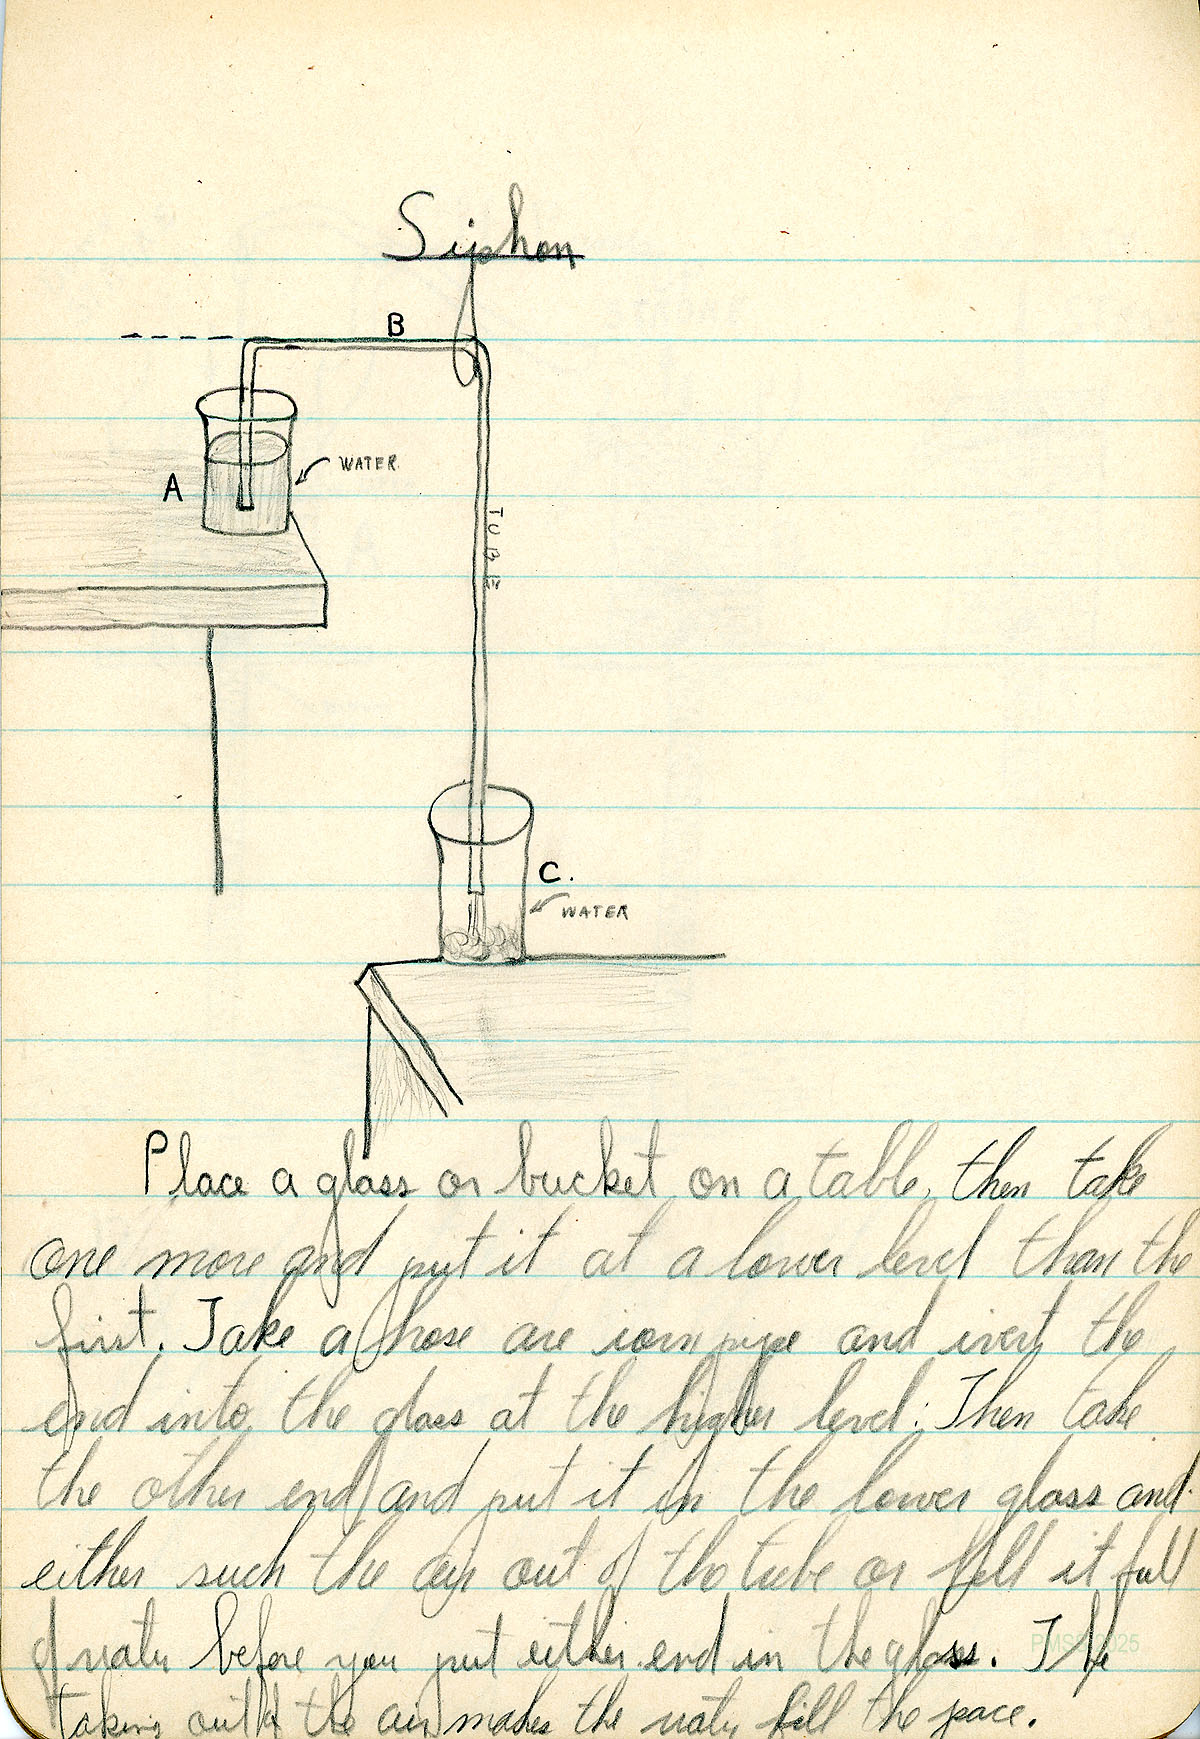 Siphon
B
WATER
A
TUBE
C.
WATER
Place a glass or bucket on a table, then take
one more and put it at a lower level than the
first. Take a hose are iorn pipe and ivert the
end into the glass at the higher level. Then take
the other end and put it in the lower glass and
either such the air out of the tube or fill it full
of water before you put either end in the glass. The
PMSS 2025
taking out of the air makes the water fill the pace.